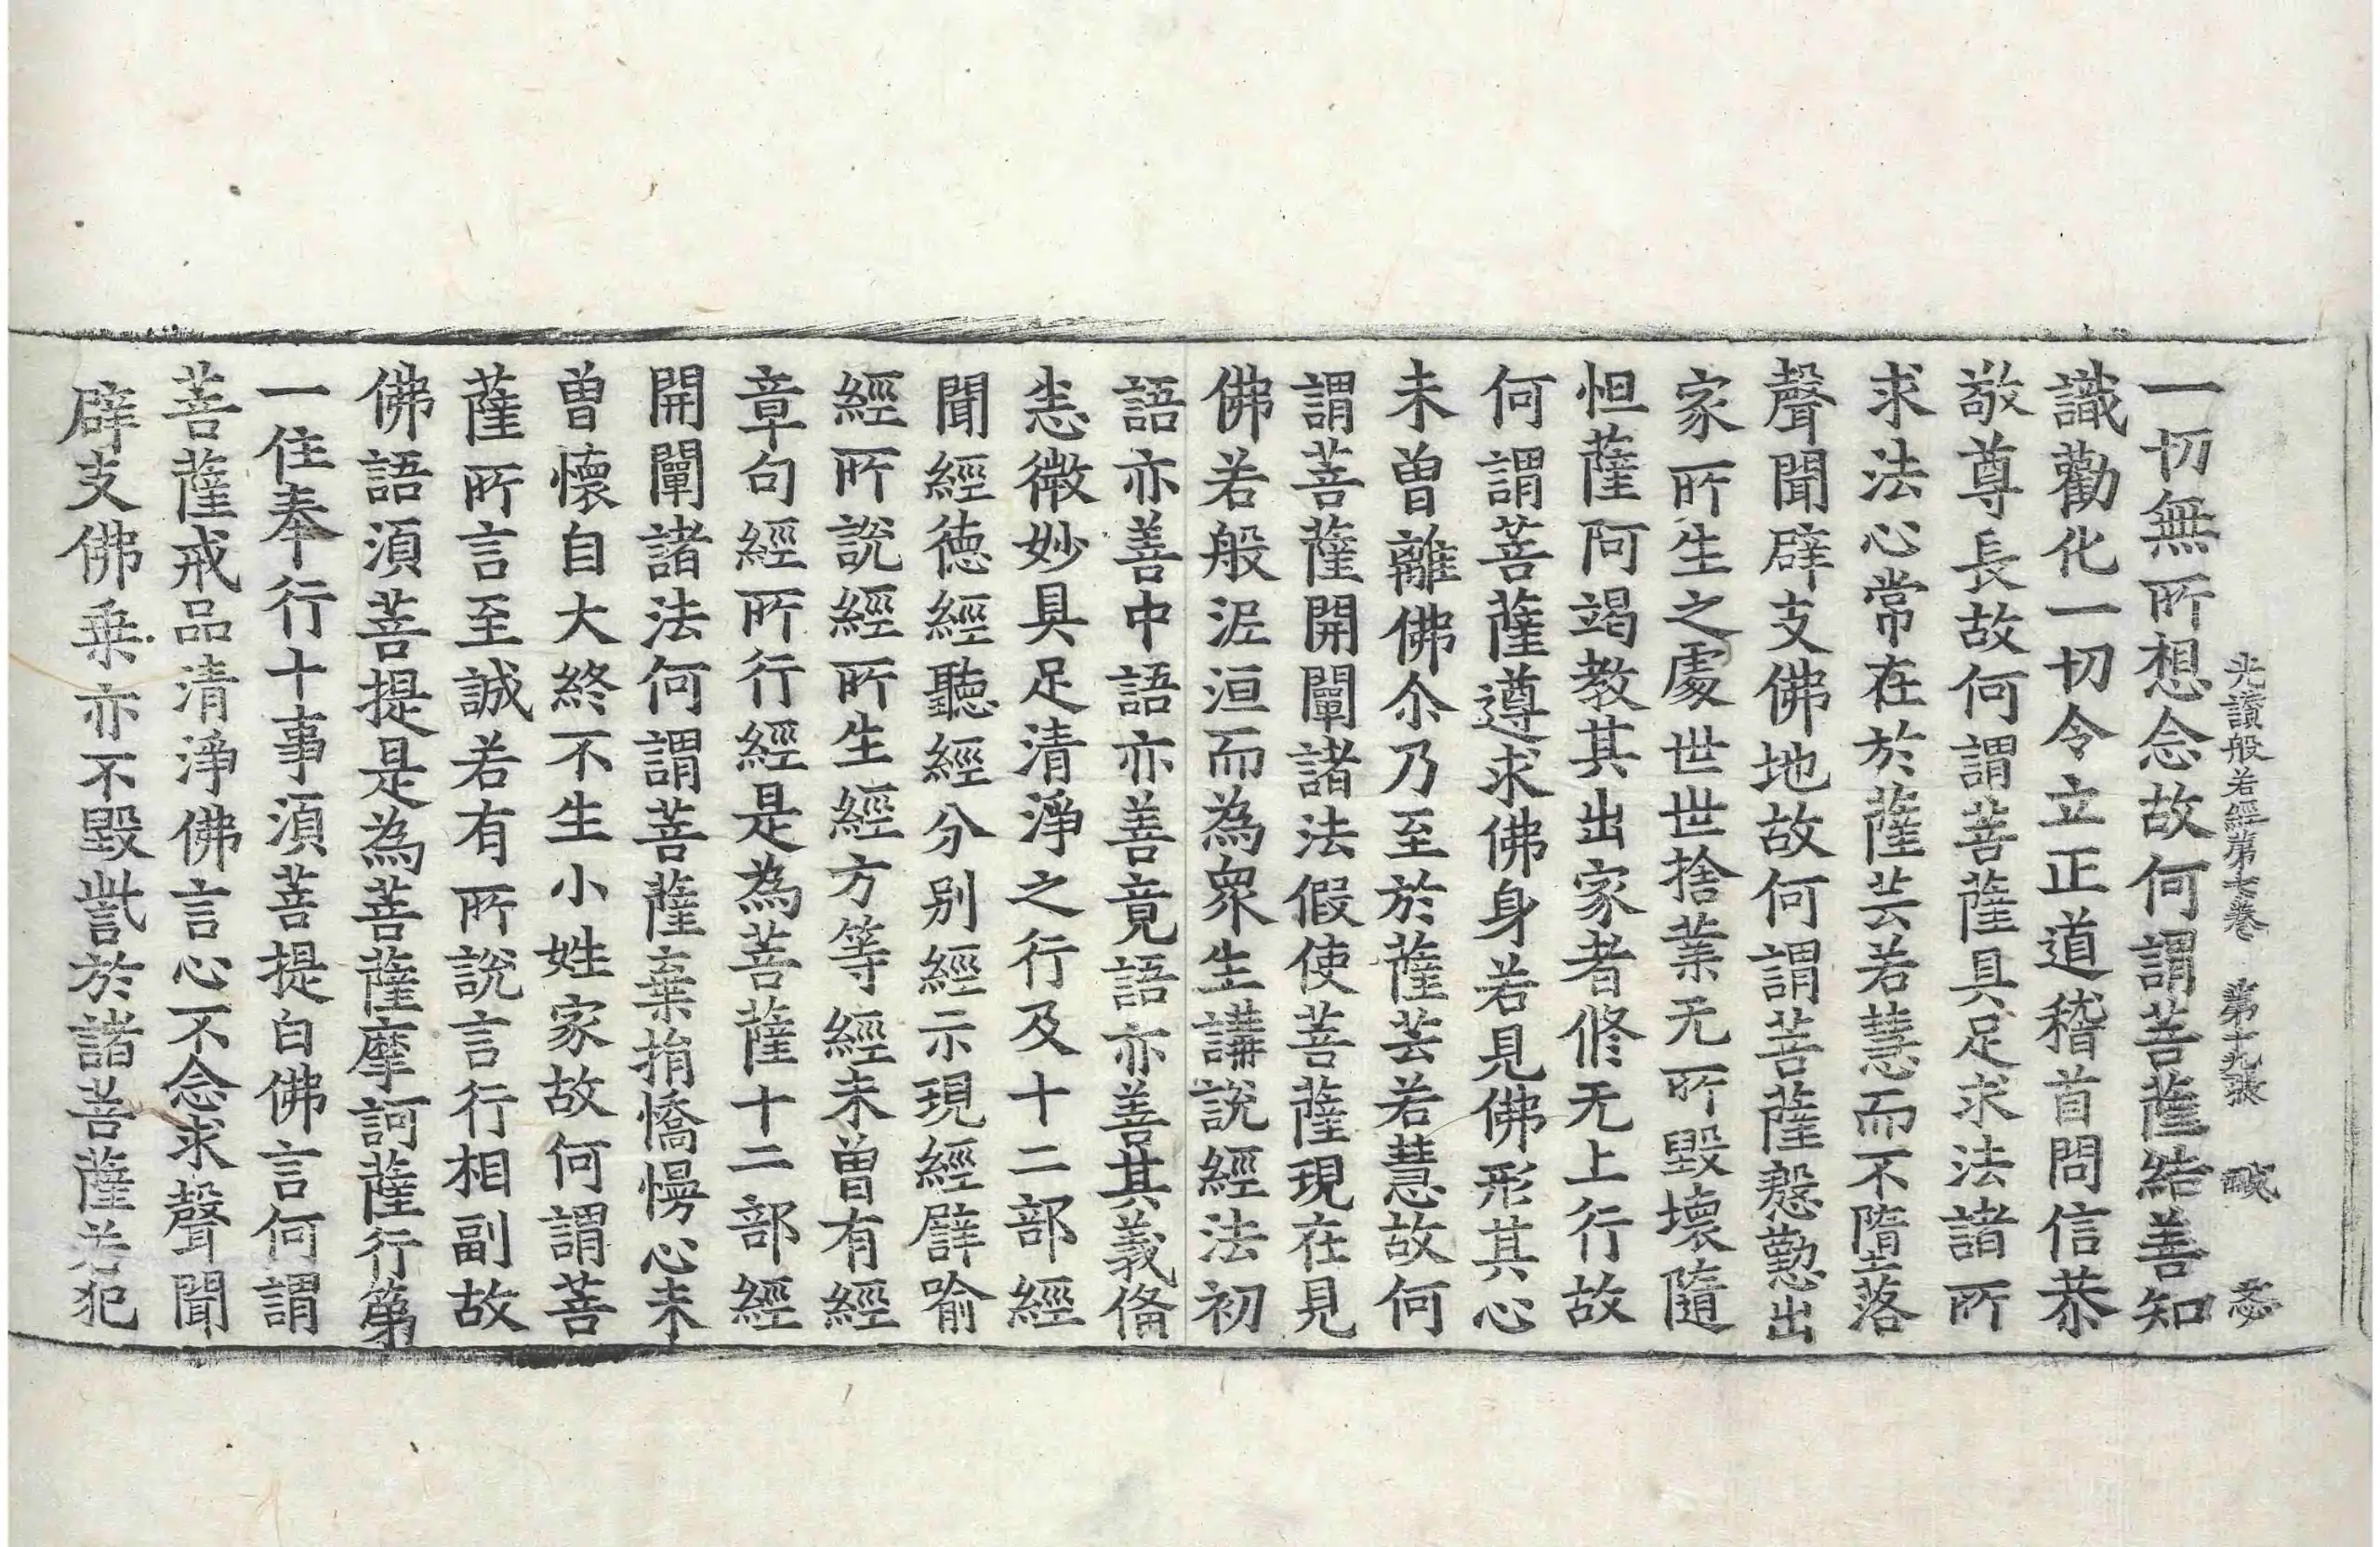 光讃般若經第七卷 第十九張 醎
一切無所想念故何謂菩薩結善知
識勸化一切令立正道稽首問信恭
敬尊長故何謂菩薩具足求法諸所
求法心常在於薩芸若慧而不墮落
聲聞辟支佛地故何謂菩薩慇懃出
家所生之處世世捨業无所毀壞隨
怛薩阿竭教其出家者修无上行故
何謂菩薩遵求佛身若見佛形其心
未曾離佛尒乃至於薩芸若慧故何
謂菩薩開闡諸法假使菩薩現在見
佛若般泥洹而為衆生講說經法初
語亦善中語亦善竟語亦善其義俻
悉微妙具足清淨之行及十二部經
聞經德經聽經分別經示現經譬喻
經所說經所生經方等經未曾有經
章句經所行經是為菩薩十二部經
開闡諸法何謂菩薩棄捐憍慢心未
曾懷自大終不生小姓家故何謂菩
薩所言至誠若有所說言行相副故
佛語須菩提是為菩薩摩訶薩行第
一住奉行十事須菩提白佛言何謂
菩薩戒品清淨佛言心不念求聲聞
辟支佛乗亦不毀呰於諸菩薩若犯